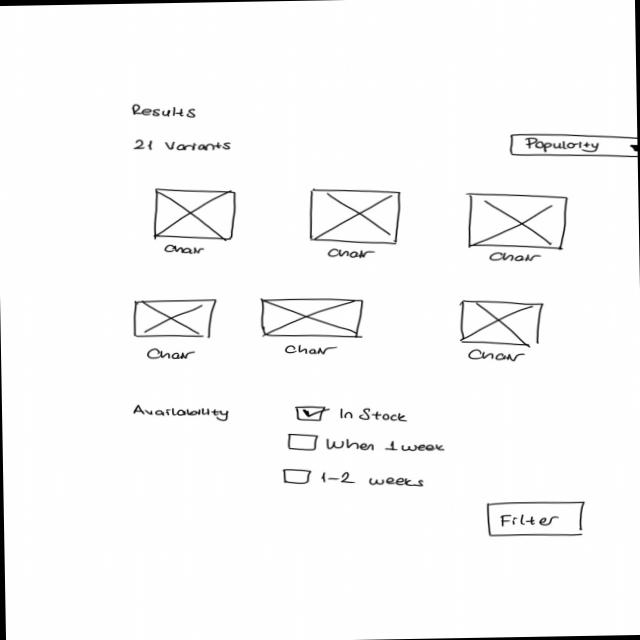 Results
21 Variants
Popularity
Chair Chair Chair
Chair Chair Chair
Availability
In Stock
When 1 week
1-2 weeks
Filter